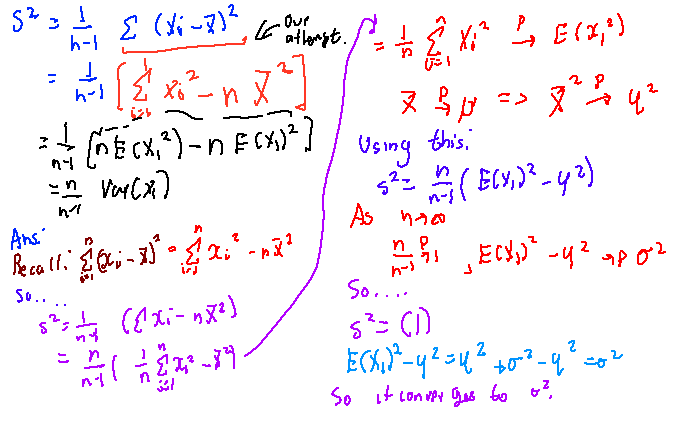 S² = 1/(n-1) Σ (Xi - X̄)² ← Our attempt.
= 1/(n-1) [Σ_{i=1} Xi² - n X̄²]
= 1/(n-1) [n E(X₁²) - n E(X₁)²]
= n/(n-1) Var(Xi)
Ans:
Recall: Σ_{i=1}^n (xi - x̄)² = Σ_{i=1}^n xi² - n x̄²
So....
s² = 1/(n-1) (Σ xi - n x̄²)
= n/(n-1) ( 1/n Σ_{i=1}^n xi² - x̄²)
= 1/n Σ_{i=1}^n Xi² →p E(x₁²)
X̄ →p μ => X̄² →p μ²
Using this:
s² = n/(n-1) (E(X₁)² - μ²)
As n→∞
n/(n-1) →p 1, E(X₁)² - μ² →p σ²
So....
s² = (1)
E(X₁)² - μ² = μ² + σ² - μ² = σ²
So it converges to σ².